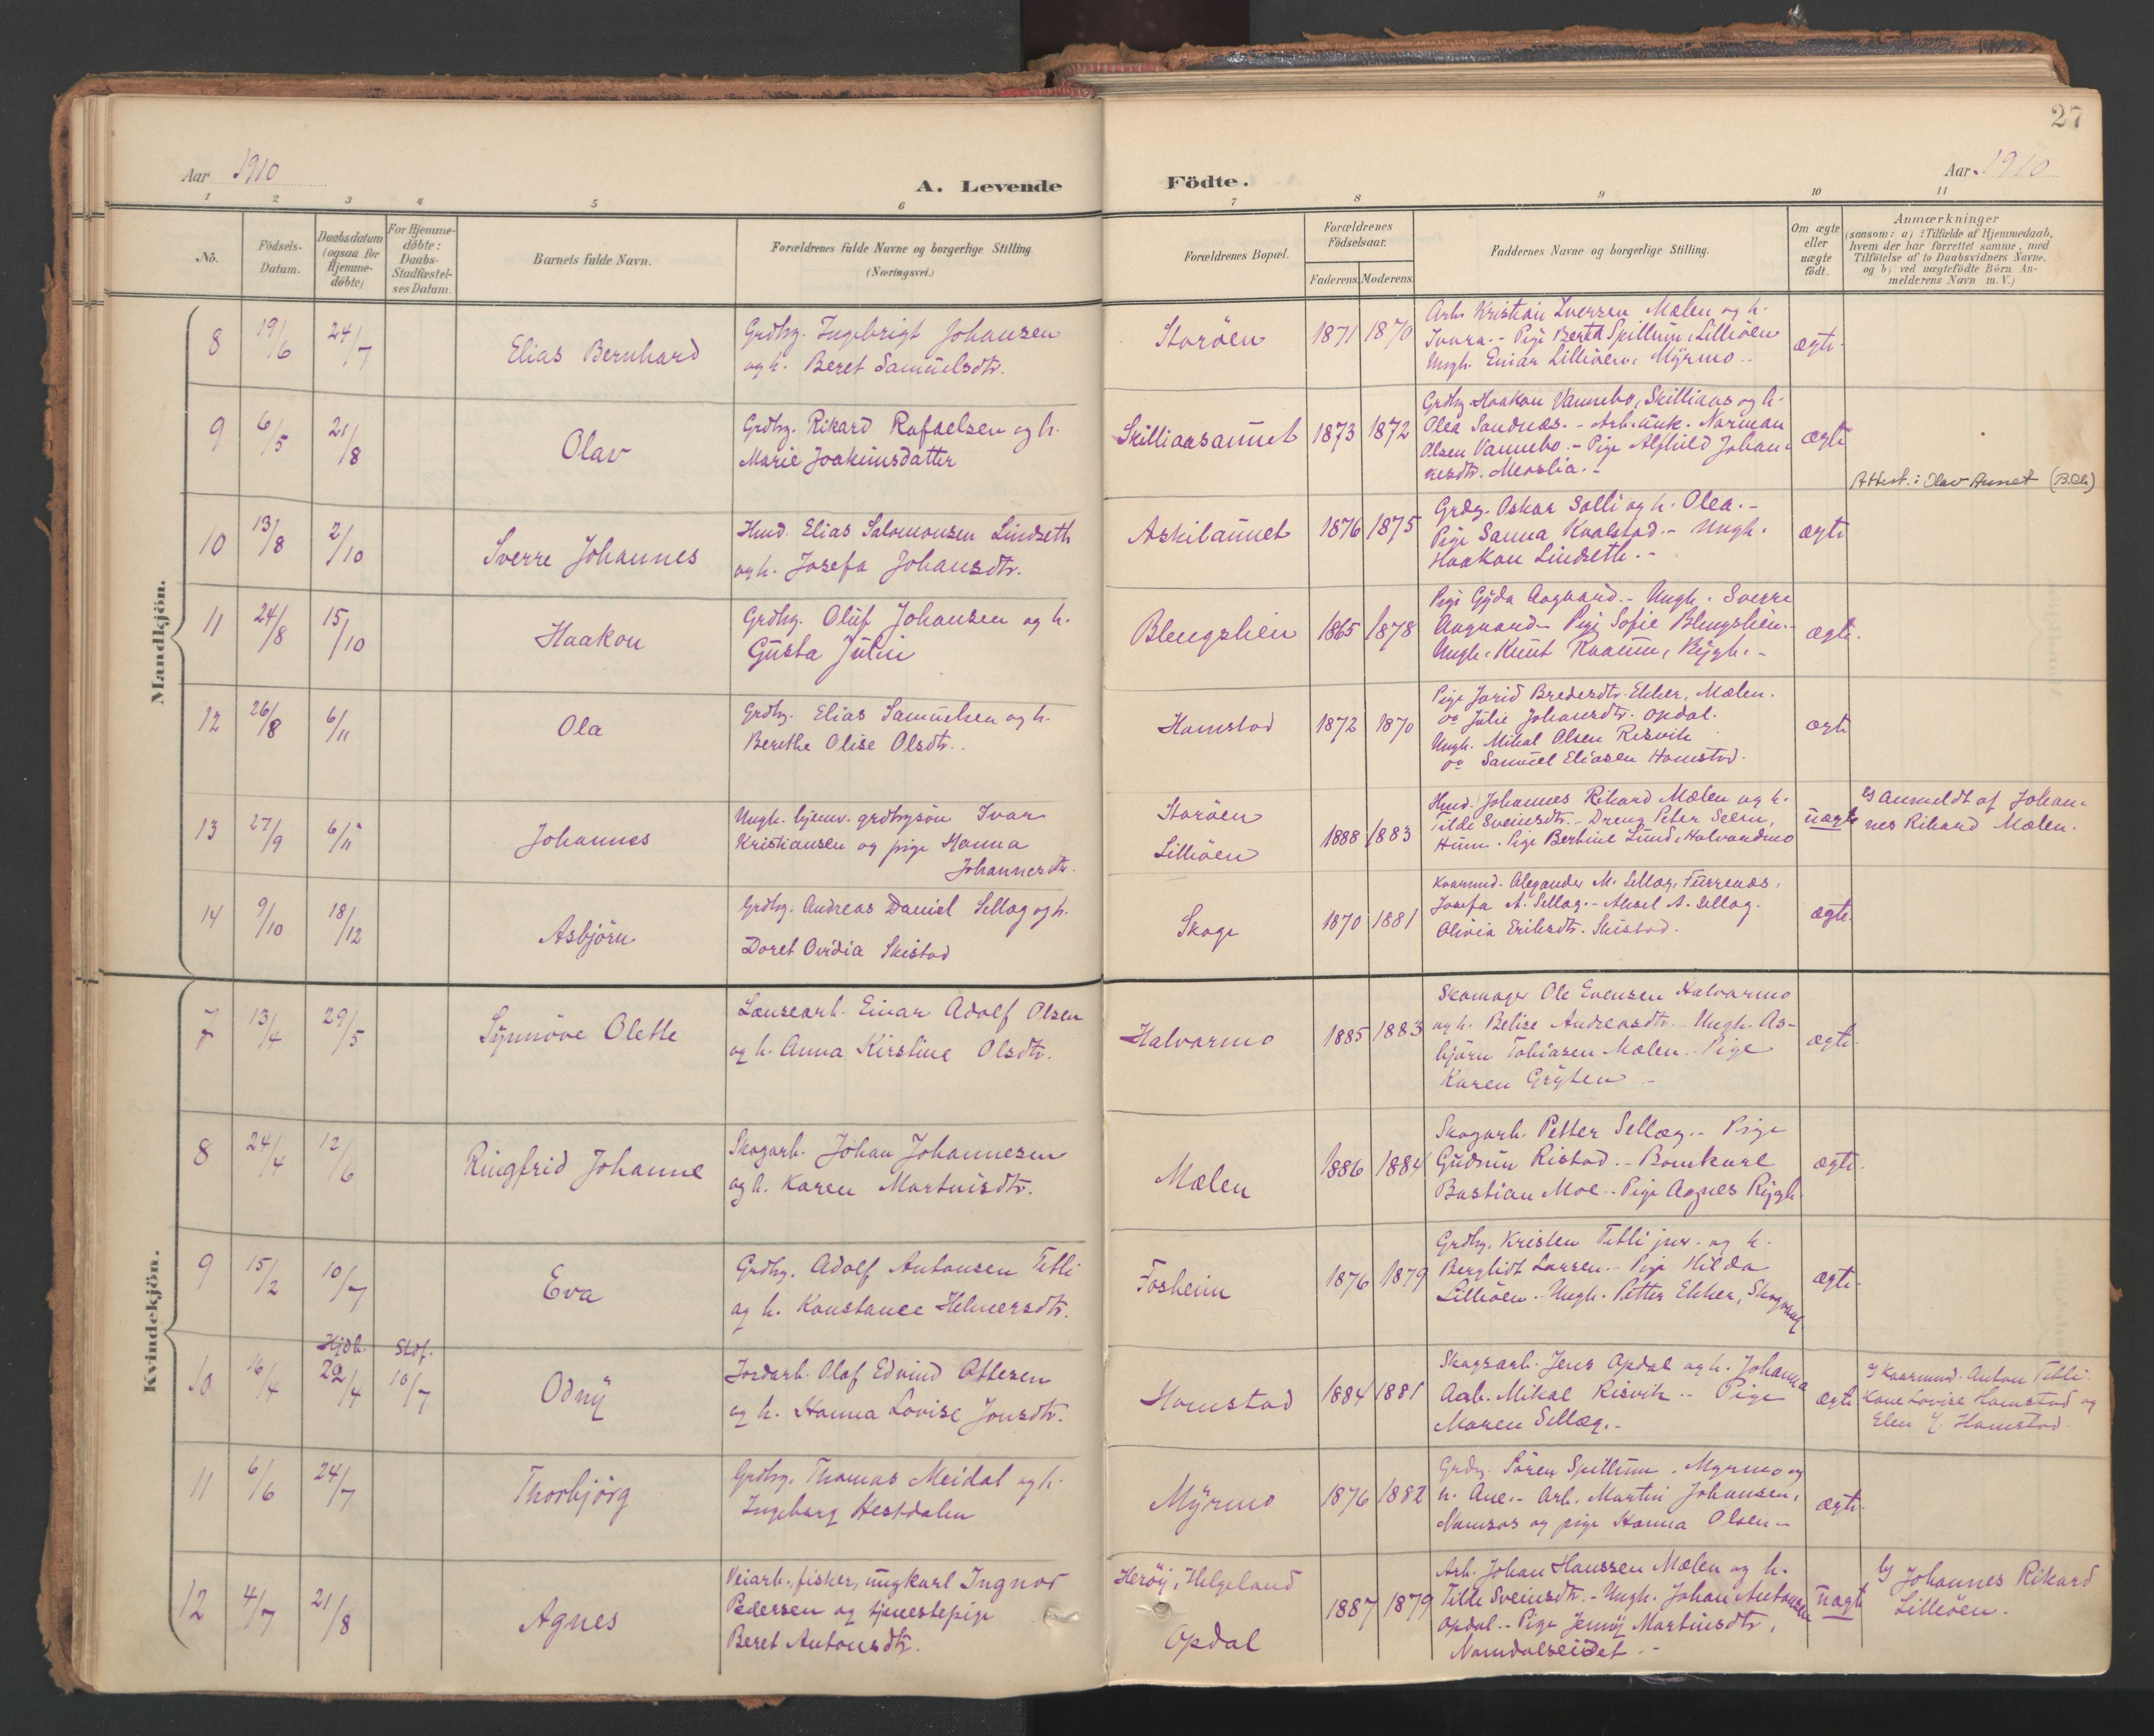 27
Aar 1910
A. Levende Födte.
Aar 1910
1 2 3 4 5 6 7 8 9 10 11
Nö.
Födsels-Datum.
Daabsdatum (ogsaa for Hjemme-döbte)
For Hjemme-döbte: Daabs-Stadfæstel-ses Datum.
Barnets fulde Navn.
Forældrenes fulde Navne og borgerlige Stilling. (Næringsvei.)
Forældrenes Bopæl.
Forældrenes Födselsaar.
Faderens. Moderens.
Faddernes Navne og borgerlige Stilling.
Om ægte eller uægte födt.
Anmærkninger
(saasom: a) i Tilfælde af Hjemmedaab,
hvem der har forrettet samme, med
Tilföielse af to Daabsvidners Navne,
og b) ved uægtefödte Börn An-
melderens Navn m.V.)
Mandkjön.
8 19/6 24/7 Elias Bernhard
Grdbr. Ingebrigt Johansen
og h. Beret Samuelsdtr.
Storöen 1871 1870
Arb. Kristian Iversen Mælen og h.
Ivara.- Pige Berta Spillum, Lilleöen
Ungk. Einar Lilleöen, Myrmo.-
ægte.
9 6/5 21/8 Olav
Grdbr. Rikard Rafaelsen og h.
Marie Joakimsdatter
Skilliaasaunet 1873 1872
Grdbr. Haakon Vannebo, Skilliaas og h.
Olea Sandnæs.- Arb. enk. Norman
Olsen Vannebo.- Pige Alfhild Johan-
nesdtr. Meoslia.-
ægte
Attest.: Olav Aunet
10 13/8 2/10 Sverre Johannes
Hmd. Elias Salomonsen Lindseth
og h. Josefa Johansdtr.
Askilaunet 1876 1875
Grdbr. Oskar Solli og h. Olea.-
Pige Sanna Kvalstad.- Ungk.
Haakon Lindseth.-
ægte
11 24/8 15/10 Haakon
Grdbr. Oluf Johansen og h.
Gusta Julin
Blengslien 1865 1878
Pige Gyda Aagaard.- Ungk. Sverre
Aagaard- Pige Sofie Blengslien.-
Ungk. Knut Kvaum, Rygh.-
ægte.
12 26/8 6/11 Ola
Grdbr. Elias Samuelsen og h.
Berethe Olise Olsdtr.
Homstad 1872 1870
Pige Jorid Bredesdtr. Ekker, Mælen.
do Julie Johansdtr. Opdal.
Ungk. Mikal Olsen Risvik
do Samuel Eliasen Homstad.
ægte
13 27/9 6/11 Johannes
Ungk. hjemv. grdbrsön Ivar
Kristiansen og pige Hanna
Johannesdtr.
Storöen
Lilleöen
1888 1883
Hmd. Johannes Rikard Mælen og h.
Tilde Sveinsdtr.- Dreng Peter Seem,
Hunn. Pige Berbine Lund, Halvardmo
uægte
b) Anmeldt af Johan-
nes Rikard Mælen.
14 9/10 18/12 Asbjörn
Grdbr. Andreas Daniel Sellæg og h.
Doret Ovidia Skistad
Skage 1870 1881
Kaarmd. Alexander M. Sellæg, Furrenæs.
Josefa A. Sellæg.- Aksel A. Sellæg.
Olivia Eriksdtr. Skistad.
ægte.
Kvindekjön.
7 13/4 29/5 Synnöve Olette
Lænsearb. Einar Adolf Olsen
og h. Anna Kirstine Olsdtr.
Halvarmo 1885 1883
Skomager Ole Evensen Halvarmo
og h. Belise Andreasdtr.- Ungk. As-
björn Tobiasen Mælen.- Pige
Karen Gryten -
ægte.
8 24/4 12/6 Ringfrid Johanne
Skogarb. Johan Johannesen
og h. Karen Martinsdtr.
Mælen 1886 1884
Skogarb. Petter Sellæg.- Pige
Gudrun Ristad.- Bomkarl
Bastian Moe.- Pige Agnes Rygh
ægte.
9 15/2 10/7 Eva
Grdbr. Adolf Antonsen Tetli
og h. Konstance Helmersdtr.
Fosheim 1876 1879
Grdbr. Kristen Tetli jun. og h.
Bergliot Larsen.- Pige Hilda
Lilleöen.- Ungk. Petter Ekker,
ægte.
10 16/4 Hjdb. 29/4 Stdf. 10/7 Odny
Jordarb. Olaf Edvind Ottesen
og h. Hanna Lovise Jonsdtr.
Homstad 1884 1881
Skogsarb. Jens Opdal og h. Johanna
Arb. Mikal Risvik.- Pige
Maren Sellæg.-
ægte
a) Kaarmand. Anton Tetli.
Kone Lovise Homstad og
Elen J. Homstad.
11 6/6 24/7 Thorbjörg
Grdbr. Thomas Meidal og h.
Ingeborg Hestdalen
Myrmo 1876 1882
Grdbr. Sören Spillum, Myrmo og
h. Ane.- Arb. Martin Johansen,
Namsos og pige Hanna Olsen-
ægte.
12 4/7 21/8 Agnes
Veiarb., fisker, ungkarl Ingvar
Pedersen og tjenestepige
Beret Antonsdtr.
Heröy, Helgeland
Opdal
1887 1879
Arb. Johan Hanssen Mælen og h.
Tilde Sveinsdtr.- Ungk. Johan Antonsen
Opdal.- Pige Jenny Martinsdtr,
Namdalseidet.-
uægte
b) Johannes Rikard
Lilleöen.